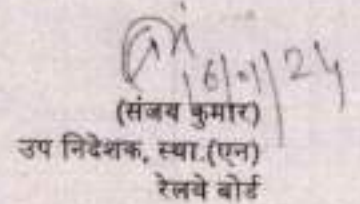 16/01/24
(संजय कुमार)
उप निदेशक, स्था.(एन)
रेलवे बोर्ड